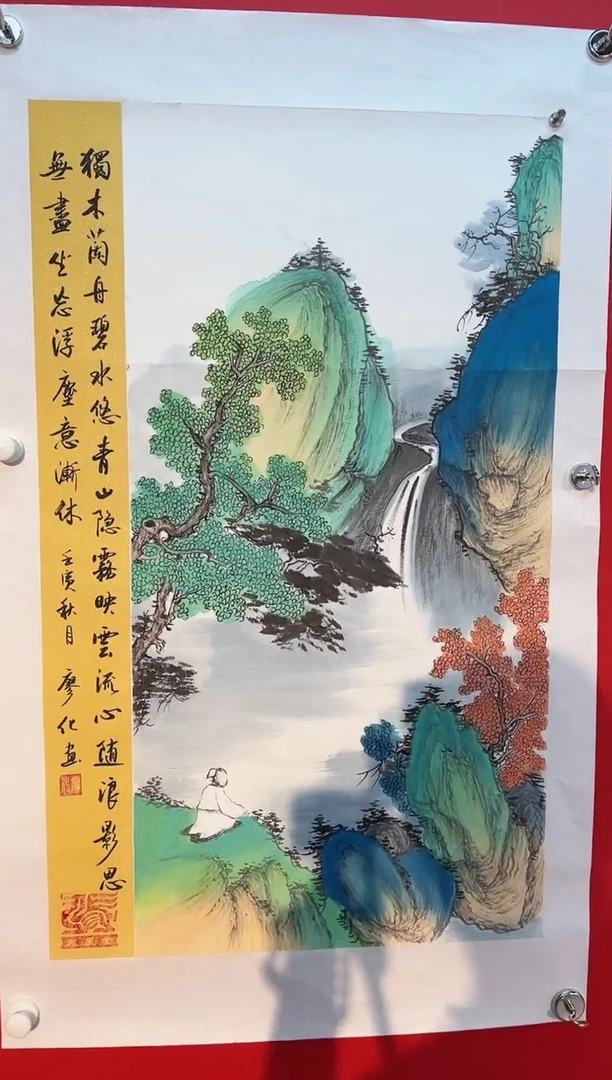 獨木蘭舟碧水悠青山隐霧映雲流心随浪影思
無盡坐忘浮塵意漸休
壬寅秋月 廖化画